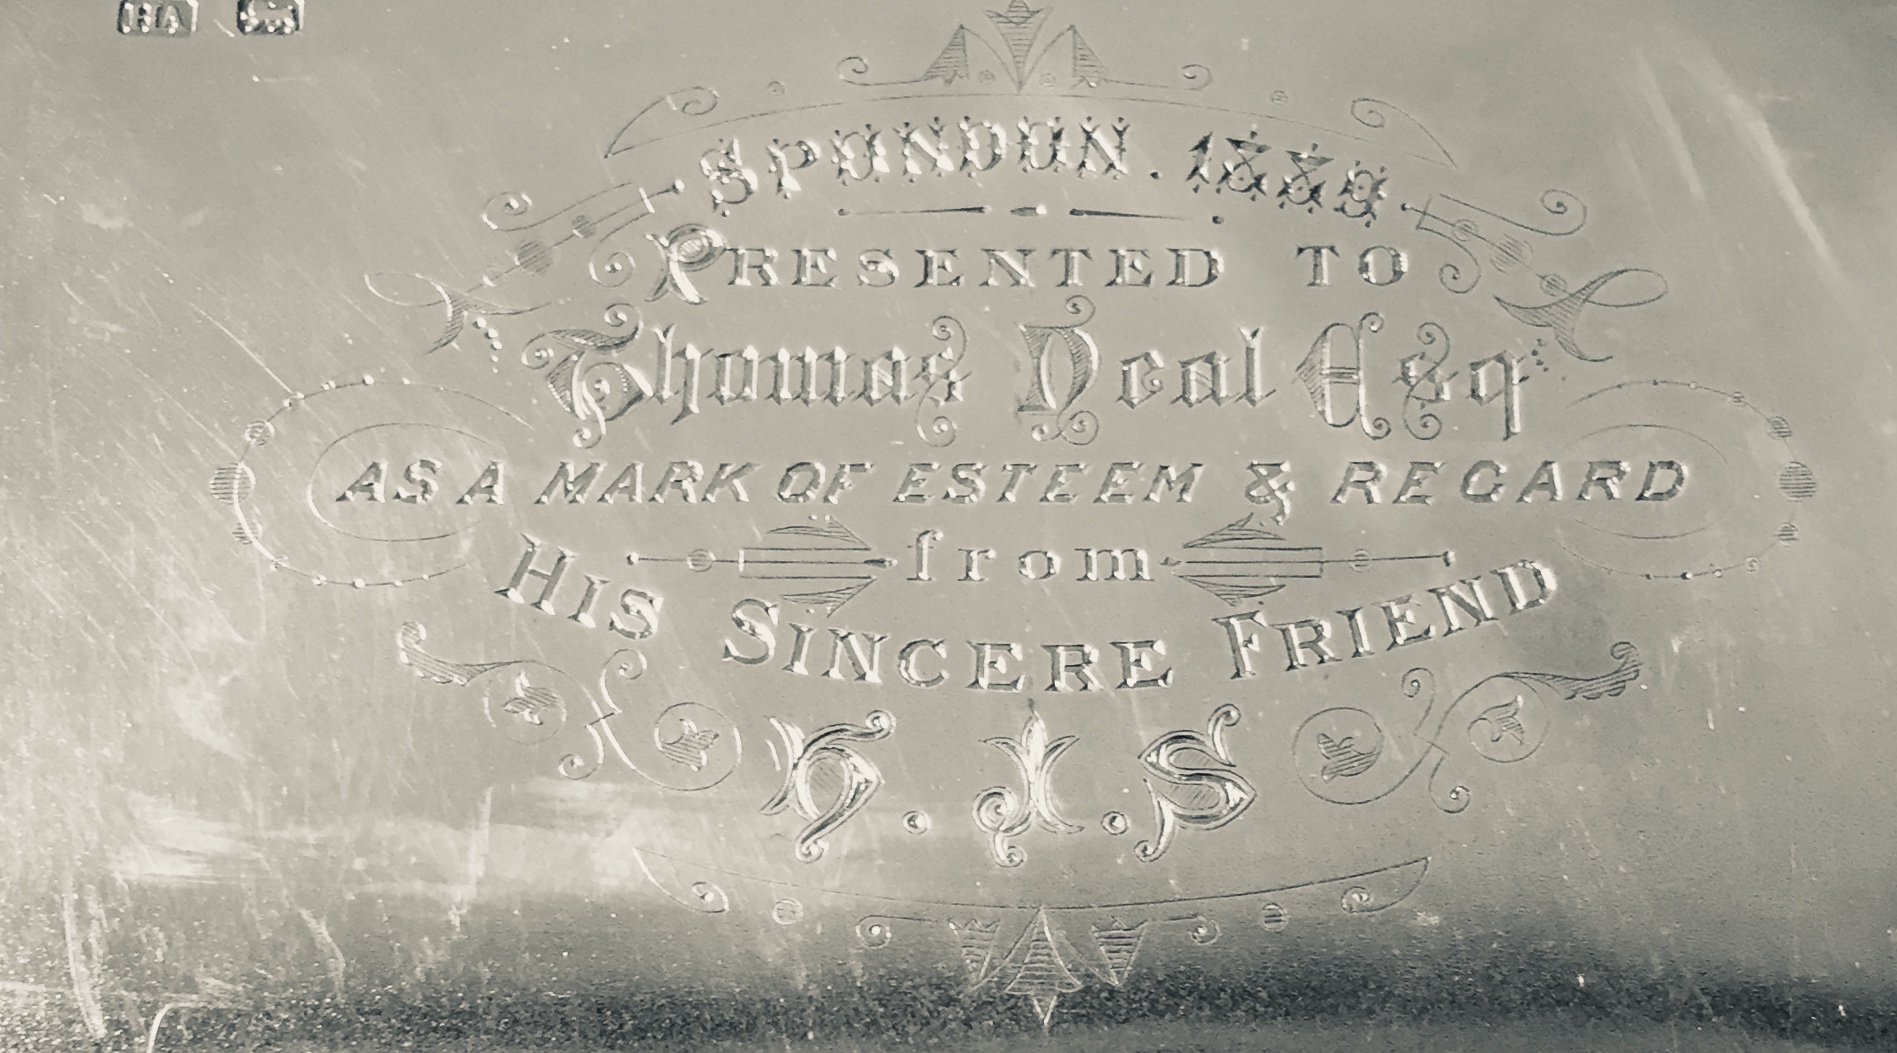 HA
SPONDON. 1889.
PRESENTED TO
Thomas Neal Esq
AS A MARK OF ESTEEM & REGARD
from
HIS SINCERE FRIEND
H. I. S